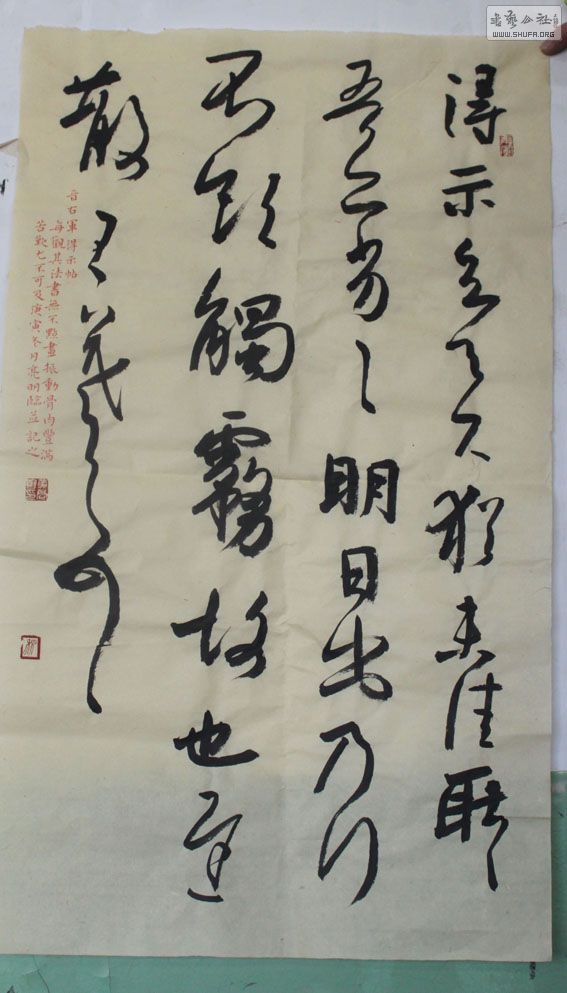 書藝公社
WWW.SHUFA.ORG
得示知足下猶未佳耿〻
吾亦劣〻明日出乃行
不欲觸霧故也遲
散王羲之頓首
晉右軍得示帖
每觀其法書無不點畫振動骨肉豐滿
苦歎不可及庚寅冬月亮明臨並記之